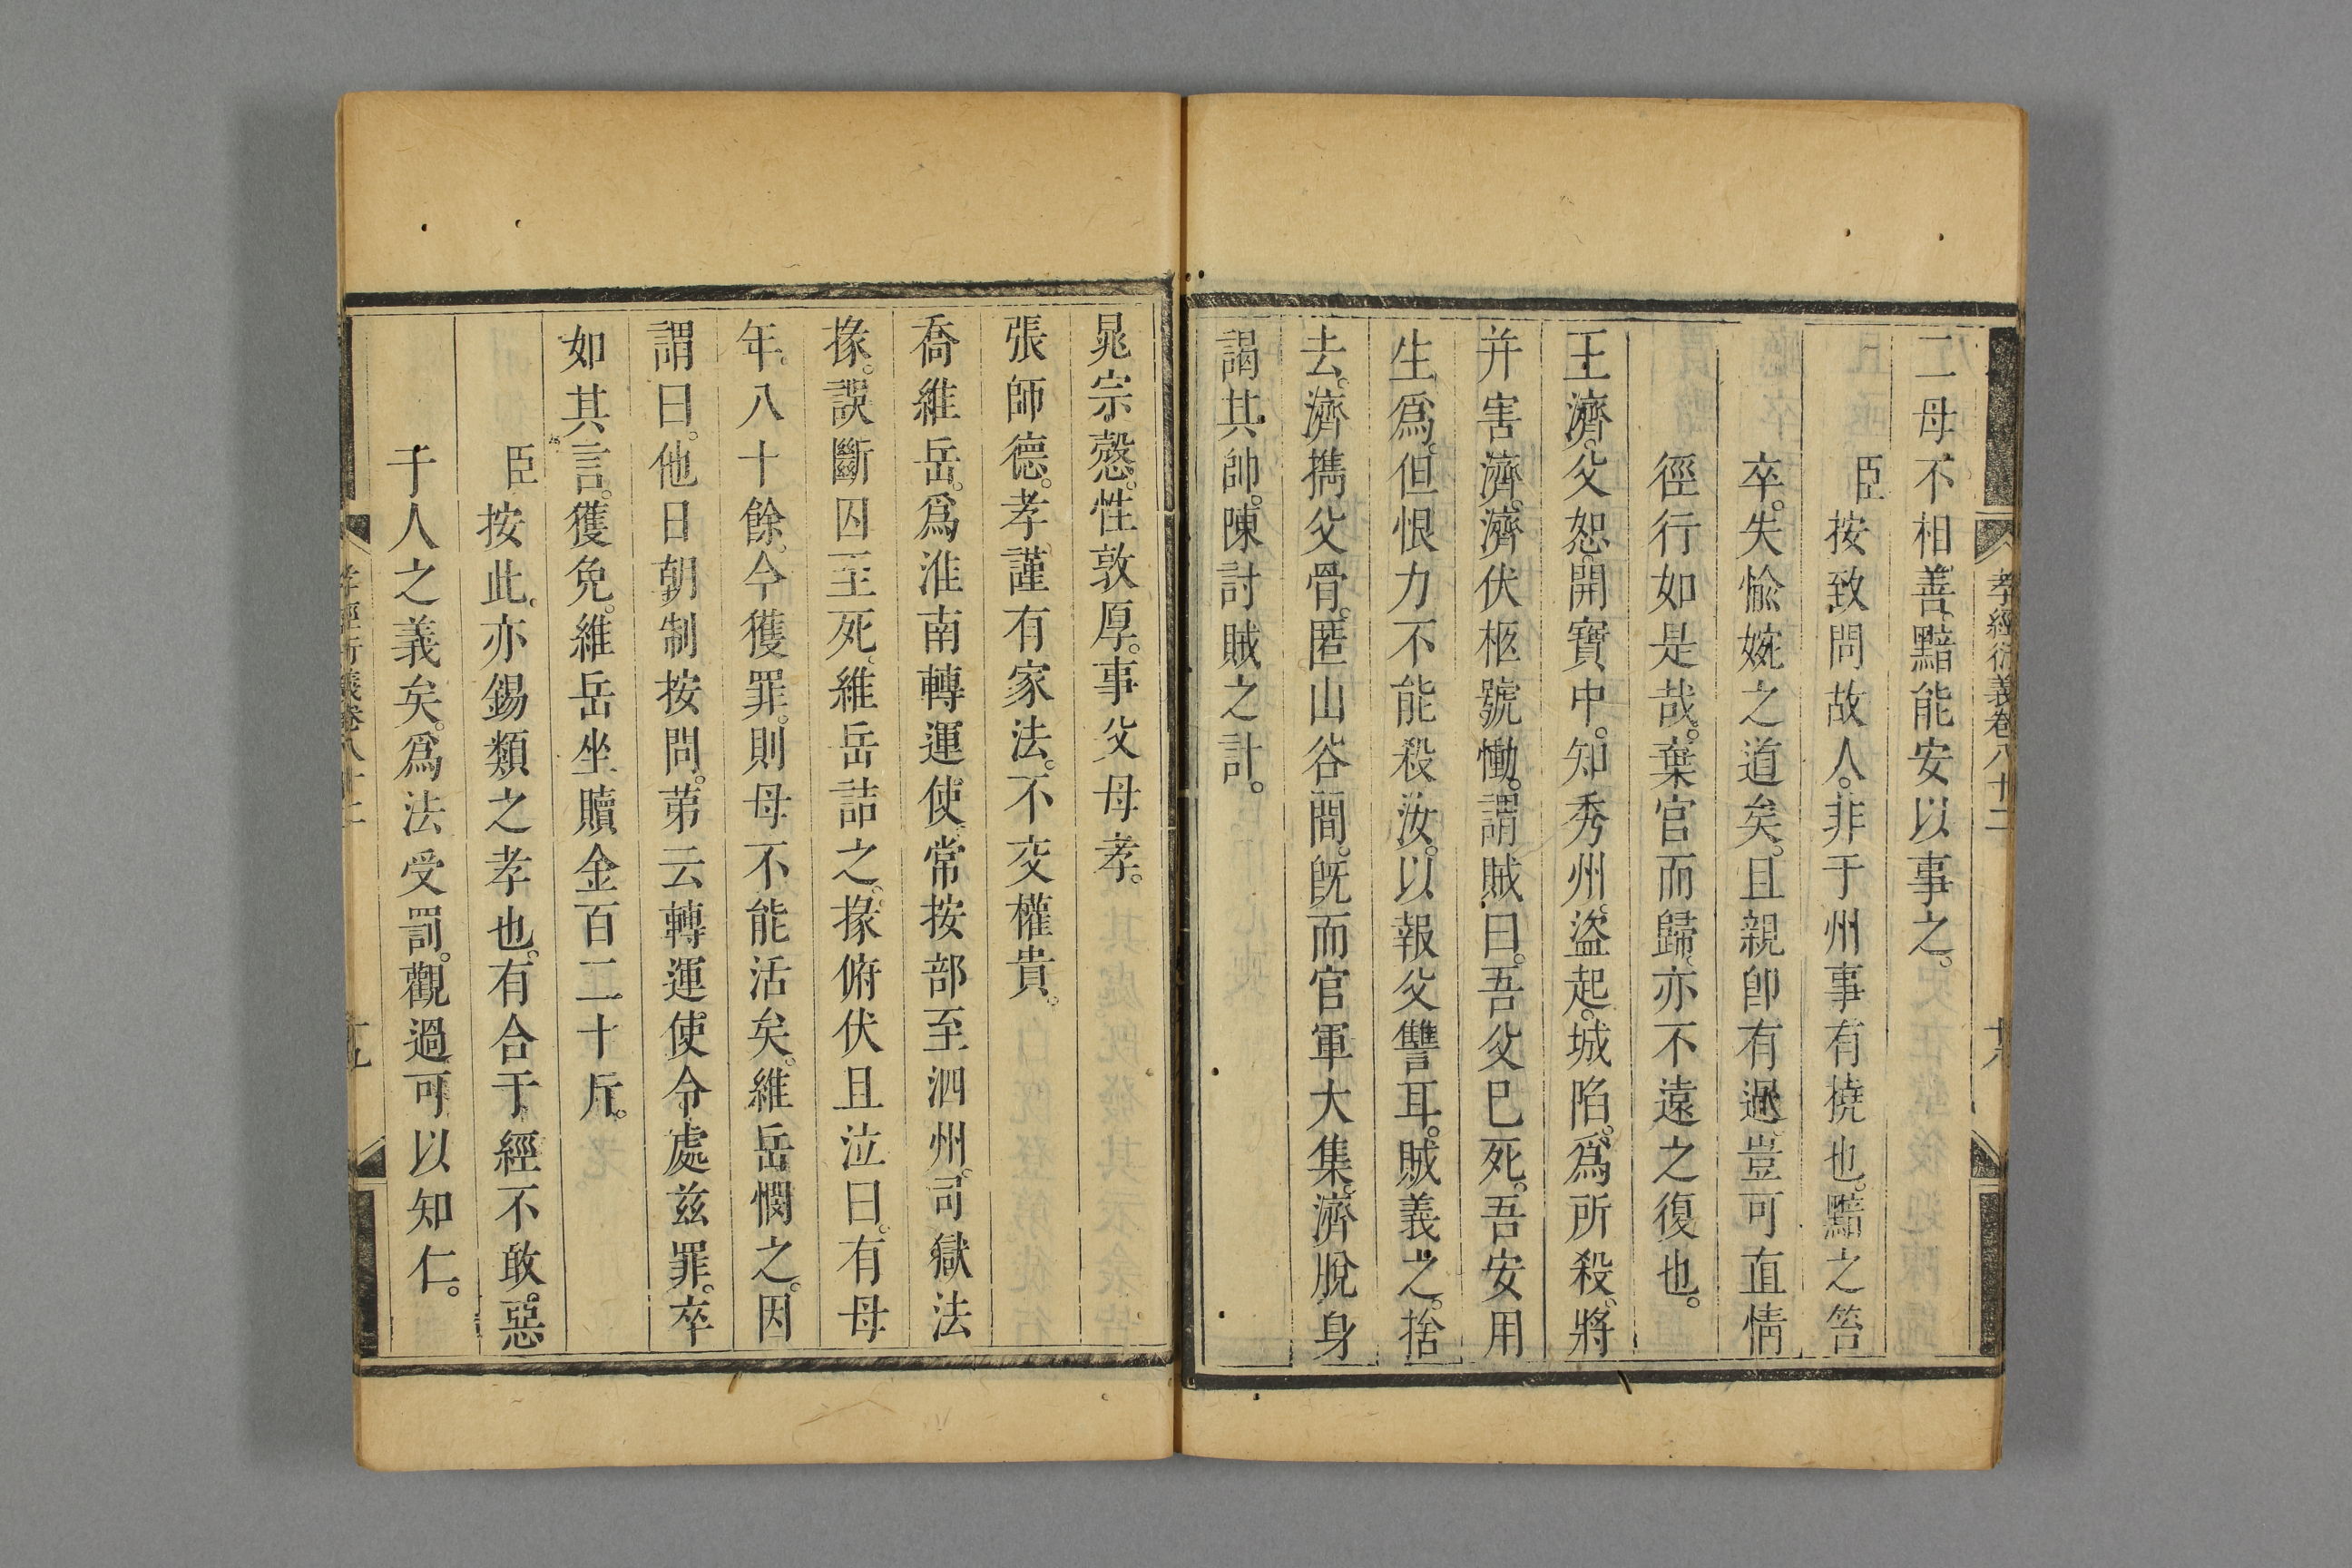 孝經衍義卷八十二
二母不相善黯能安以事之。
臣按致問故人。非于州事有撓也。黯之笞
卒。失愉婉之道矣。且親卽有過。豈可直情
徑行如是哉。葉官而歸。亦不遠之復也。
王濟。父恕。開寶中。知秀州。盜起。城陷。爲所殺。將
并害濟。濟伏柩號慟。謂賊曰。吾父巳死。吾安用
生爲。但恨力不能殺汝。以報父讐耳。賊義之。捨
去。濟攜父骨。匿山谷間。旣而官軍大集。濟脫身
謁其帥。陳討賊之計。
晁宗愨。性敦厚。事父母孝。
張師德。孝謹有家法。不交權貴。
喬維岳。爲淮南轉運使。常按部至泗州。司獄法
掾。誤斷囚至死。維岳詰之。掾俯伏且泣曰。有母
年八十餘。今獲罪。則母不能活矣。維岳憫之。因
謂曰。他日朝制按問。苐云轉運使令處兹罪。卒
如其言。獲免。維岳坐贖金百二十斤。
臣按此。亦錫類之孝也。有合于經不敢。惡
于人之義矣。爲法受罰。觀過可以知仁。
孝經衍義卷八十二